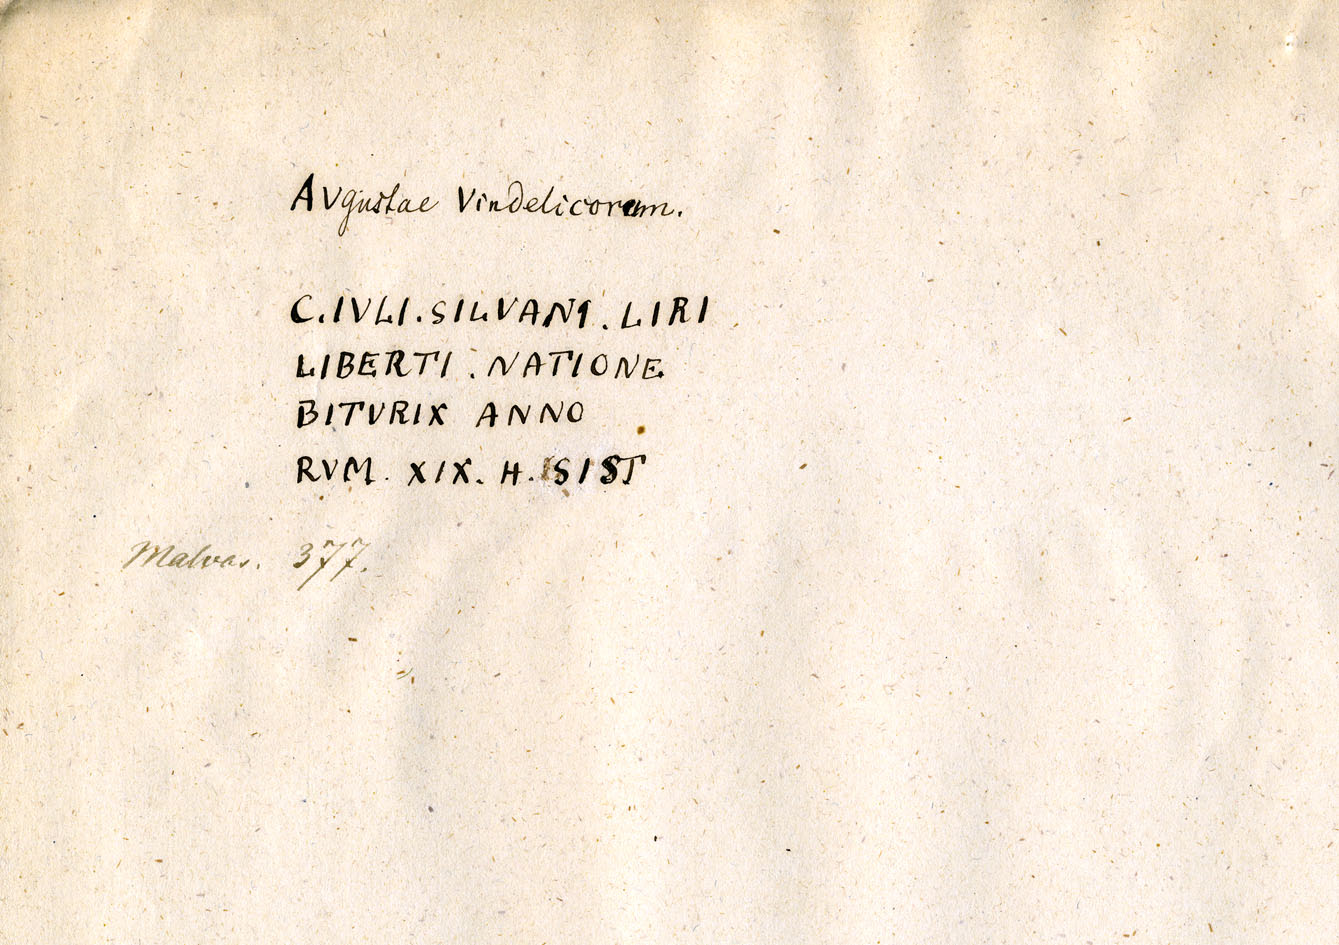 AVgustae Vindelicorum.
C.IVLI.SILVANI.LIRI
LIBERTI.NATIONE
BITVRIX ANNO
RVM. XIX. H. SIST
Malvas. 377.